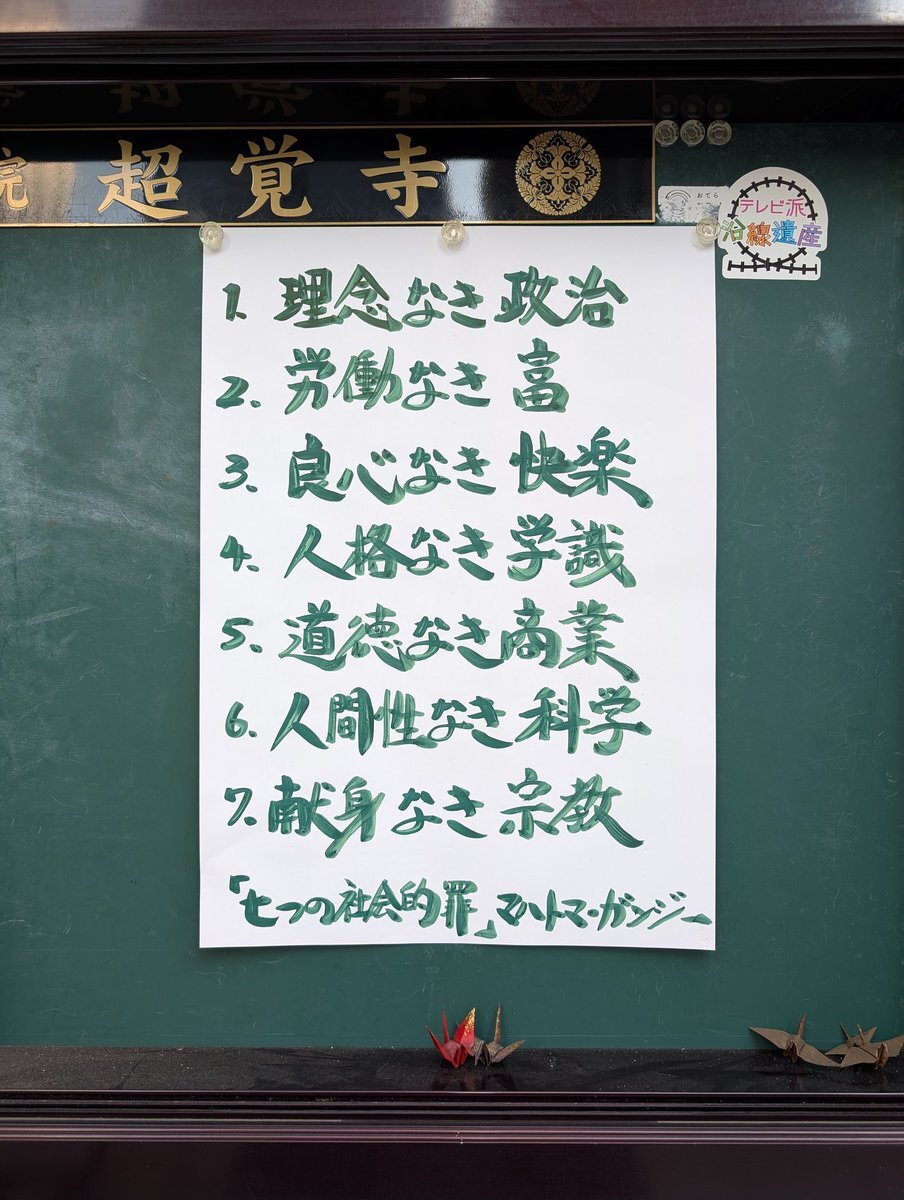 院 超覚寺
おてら
テレビ派
沿線遺産
1. 理念なき政治
2. 労働なき富
3. 良心なき快楽
4. 人格なき学識
5. 道徳なき商業
6. 人間性なき科学
7. 献身なき宗教
「七つの社会的罪」マハトマ・ガンジー